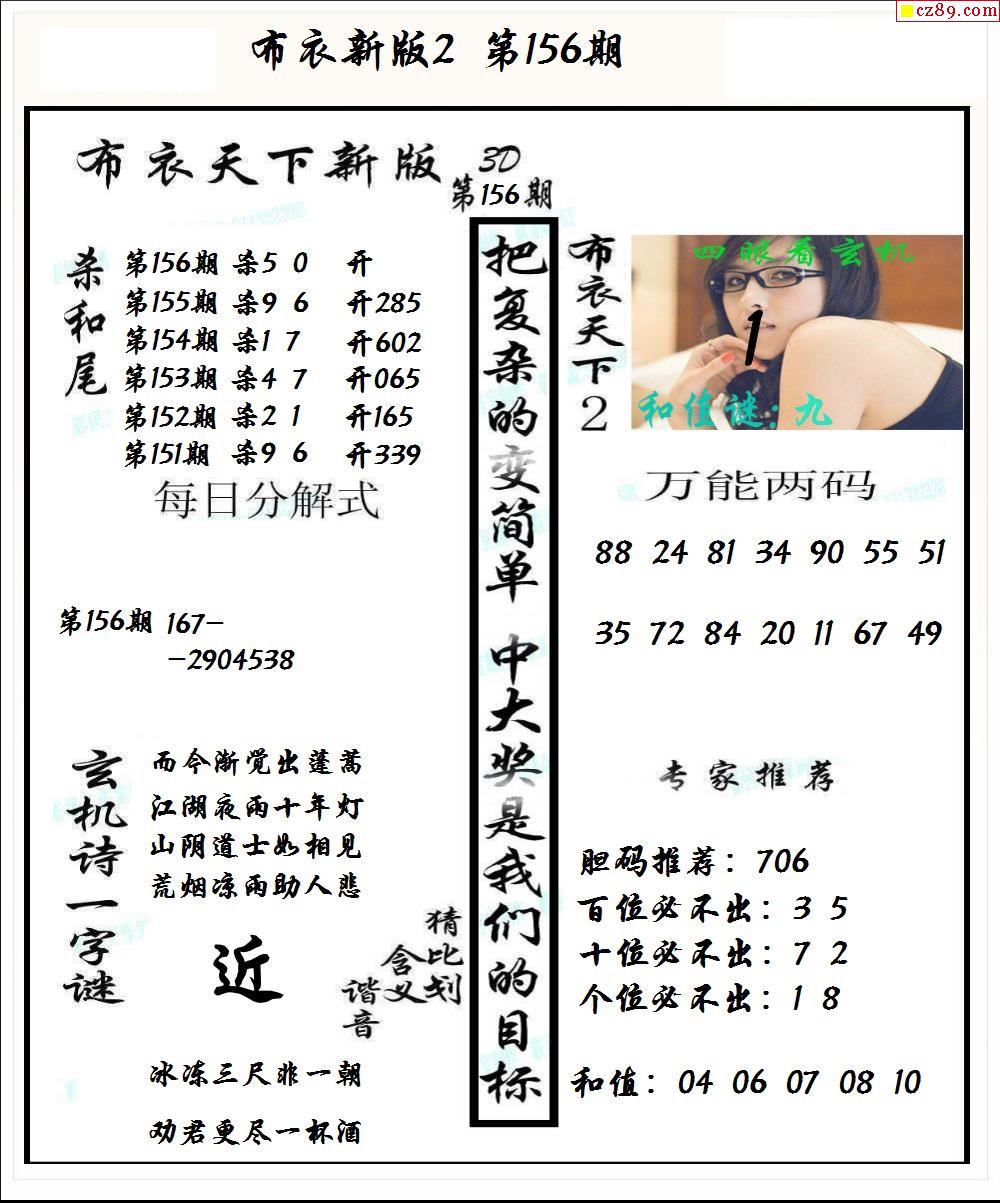 cz89.com
布衣新版2 第156期
布衣天下新版
3D
第156期
杀和尾
第156期 杀5 0 开
第155期 杀9 6 开285
第154期 杀1 7 开602
第153期 杀4 7 开065
第152期 杀2 1 开165
第151期 杀9 6 开339
每日分解式
第156期 167-
-2904538
玄机诗一字谜
而今渐觉出蓬蒿
江湖夜雨十年灯
山阴道士如相见
荒烟凉雨助人悲
近
猜比划
含义
谐音
冰冻三尺非一朝
劝君更尽一杯酒
把复杂的变简单 中大奖是我们的目标
布衣天下2
四眼看玄机
1
和值谜:九
万能两码
88 24 81 34 90 55 51
35 72 84 20 11 67 49
专家推荐
胆码推荐：706
百位必不出：3 5
十位必不出：7 2
个位必不出：1 8
和值：04 06 07 08 10